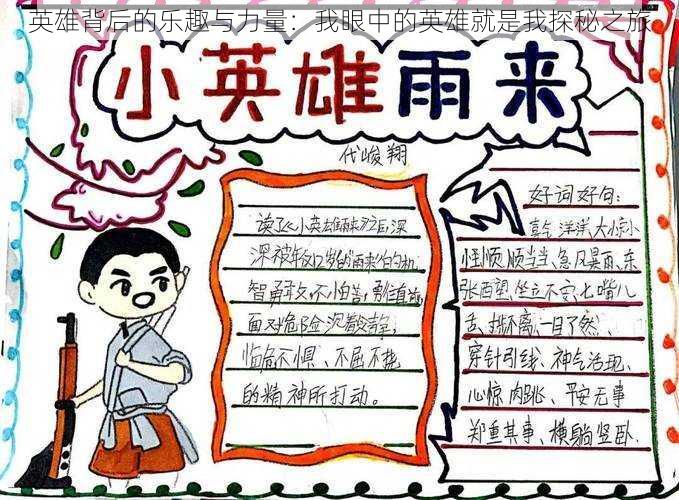 英雄背后的乐趣与力量：我眼中的英雄就是我探秘之旅
小英雄雨来
代峻翔
读了《小英雄雨来》之后,深
深被年仅12岁的雨来的机
智勇敢,不怕苦,
面对危险沉着冷静,
临危不惧、不屈不挠
的精神所打动。
好词好句:
喜气洋洋、大惊小
怪、顺顺当当、急风暴雨、东
张西望、坐立不安、七嘴八
舌、挑拨离、一目了然、
穿针引线、神气活现、
心惊肉跳、平安无事
郑重其事、横躺竖卧.